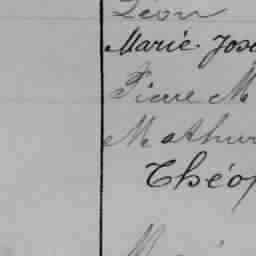 Léon
Marie Jose
Pierre M
Mathur
Théop